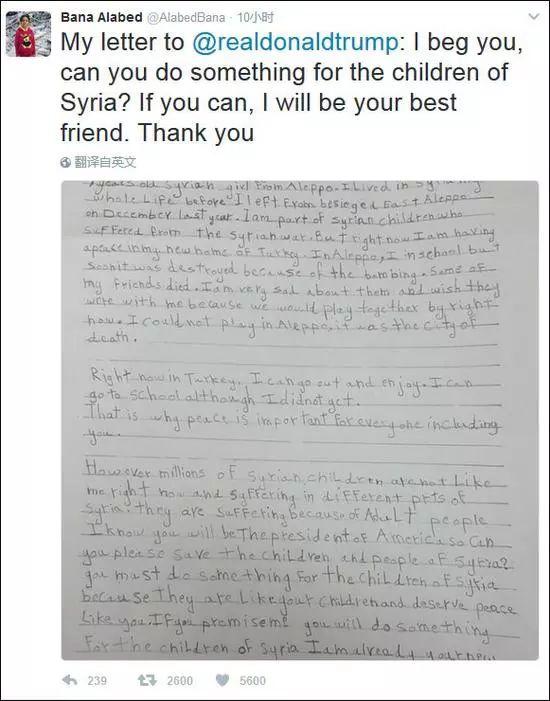 Bana Alabed @AlabedBana · 10小时
My letter to @realdonaldtrump: I beg you,
can you do something for the children of
Syria? If you can, I will be your best
friend. Thank you
翻译自英文
years old Syrian girl From Aleppo. I Lived in Syria my
whole Life before I left From besieged East Aleppo
on December last year. I am part of Syrian children who
suffered from the Syrian war. But right now I am having
apeace in my new home of Turkey. In Aleppo, I in school but
soon it was destroyed because of the bombing. Some of
my friends died. I am very sad about them and wish they
were with me because we would play together by right
now. I could not play in Aleppo, it was the city of
death.
Right now in Turkey, I can go out and enjoy. I can
go to school although I didnot yet.
That is why peace is important For everyone including
you.
However millions of Syrian children are not Like
me right now and suffering in different prts of
Syria. they are suffering because of AduLT people
I know you will be The president of America so can
you please save the children and people of Syria?
you must do something For the children of Syria
because They are Like your children and deserve peace
Like you. If you promise me you will do something
For the children of Syria I am already your new
239 2600 5600